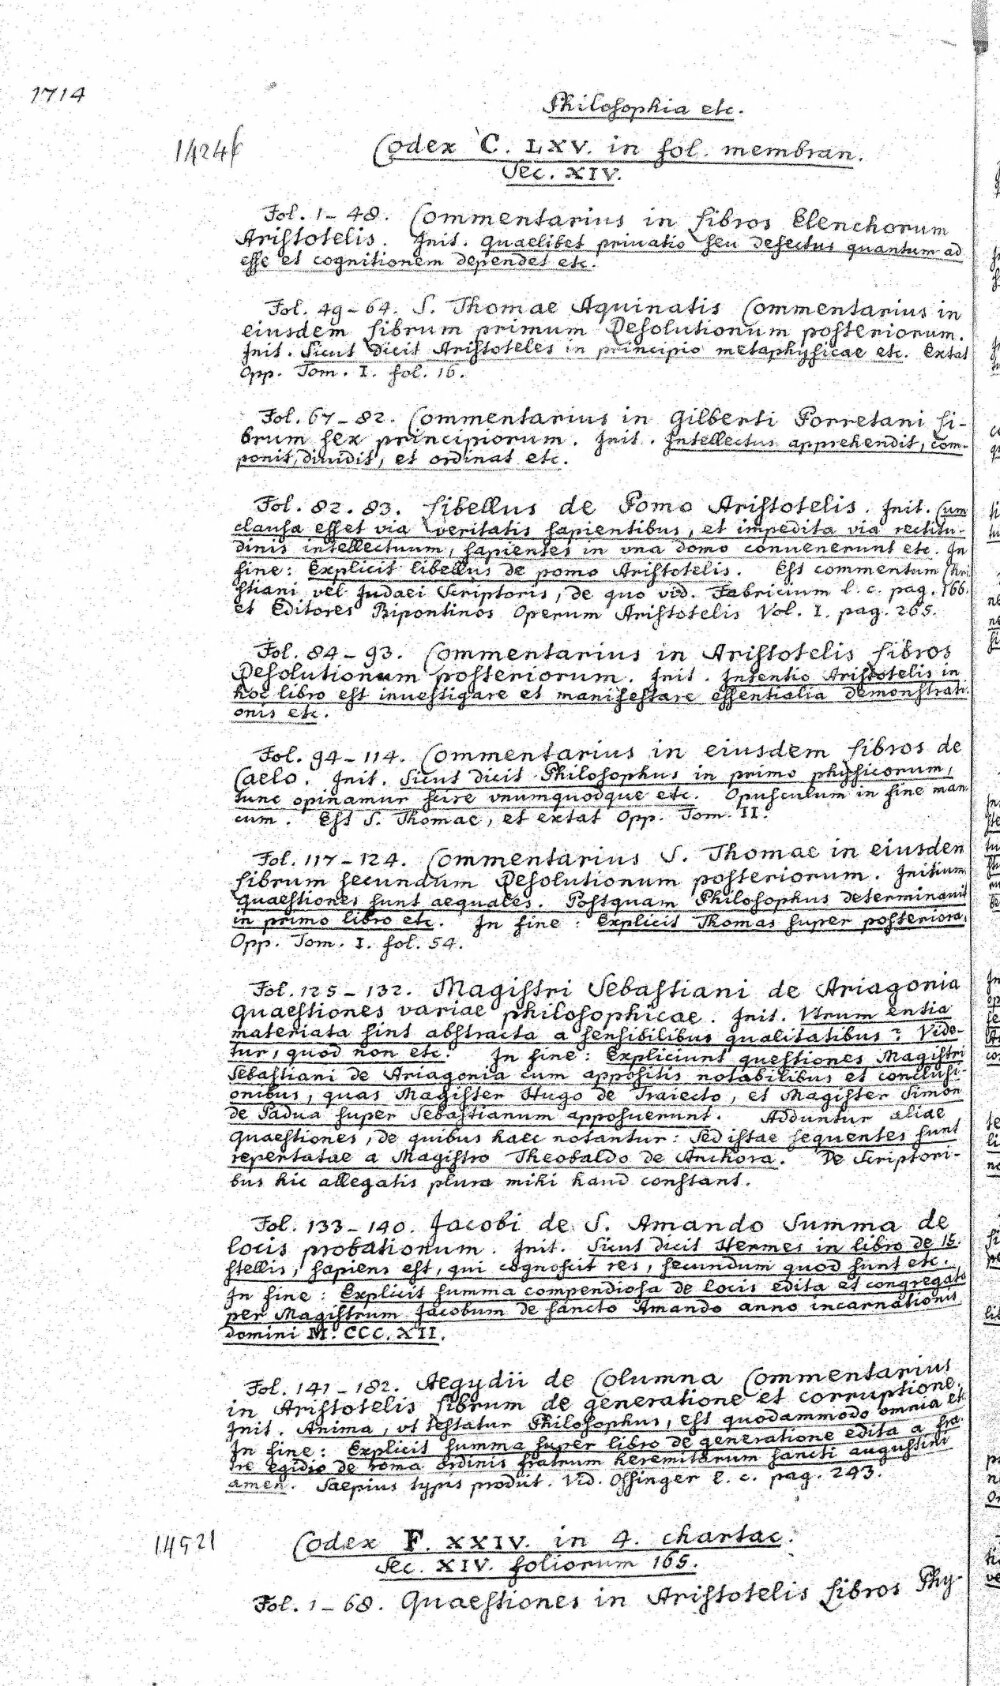 1714
Philosophia etc.
14246
Codex C. LXV. in fol. membran.
Sec. XIV.
Fol. 1-48. Commentarius in libros Elenchorum
Aristotelis. Init. Quaelibet priuatio seu defectus quantum ad
esse et cognitionem dependet etc.
Fol. 49-64. S. Thomae Aquinatis Commentarius in
eiusdem librum primum Resolutionum posteriorum.
Init. Sicut dicit Aristoteles in principio metaphysicae etc. Extat
Opp. Tom. I. fol. 16.
Fol. 67-82. Commentarius in Gilberti Porretani li-
brum sex principiorum. Init. Intellectus apprehendit, com-
ponit, diuidit, et ordinat etc.
Fol. 82. 83. Libellus de Pomo Aristotelis. Init. Cum
clausa esset via veritatis sapientibus, et impedita via rectitu-
dinis intellectuum, sapientes in vna domo conuenerunt etc. In
fine: Explicit libellus de pomo Aristotelis. Est commentum Chri
stiani vel Judaei Scriptoris, de quo vid. Fabricium l. c. pag. 166.
et Editores Bipontinos Operum Aristotelis Vol. I. pag. 265.
Fol. 84-93. Commentarius in Aristotelis libros
Resolutionum posteriorum. Init. Intentio Aristotelis in
hoc libro est inuestigare et manifestare essentialia demonstrati
onis etc.
Fol. 94-114. Commentarius in eiusdem libros de
Caelo. Init. Sicut dicit Philosophus in primo physicorum,
tunc opinamur scire vnumquodque etc. Opusculum in fine man
cum. Est S. Thomae, et extat Opp. Tom. II.
Fol. 117-124. Commentarius S. Thomae in eiusdem
librum secundum Resolutionum posteriorum. Initium
Quaestiones sunt aequales. Postquam Philosophus determinauit
in primo libro etc. In fine: Explicit Thomas super posteriora.
Opp. Tom. I. fol. 54.
Fol. 125-132. Magistri Sebastiani de Ariagonia
quaestiones variae philosophicae. Init. Vtrum entia
materiata sint abstracta a sensibilibus qualitatibus? Vide-
tur, quod non etc. In fine: Expliciunt questiones Magistri
Sebastiani de Ariagonia cum appositis notabilibus et conclusi-
onibus, quas Magister Hugo de Traiecto, et Magister Simon
de Padua super Sebastianum apposuerunt. Adduntur aliae
quaestiones, de quibus haec notantur: Sed istae sequentes sunt
repertatae a Magistro Theobaldo de Anchora. De Scriptori-
bus hic allegatis plura mihi haud constant.
Fol. 133-140. Jacobi de S. Amando Summa de
locis probationum. Init. Sicut dicit Hermes in libro de 15.
stellis, sapiens est, qui cognoscit res, secundum quod sunt etc.
In fine: Explicit summa compendiosa de locis edita et congregata
per Magistrum Jacobum de sancto Amando anno incarnationis
domini M. CCC. XII.
Fol. 141-182. Aegydii de Columna Commentarius
in Aristotelis librum de generatione et corruptione.
Init. Anima, vt testatur Philosophus, est quodammodo omnia etc
In fine: Explicit summa super libro de generatione edita a fra-
tre egidio de roma ordinis fratrum heremitarum sancti augustini
amen. Saepius typis prodiit. Vid. Ossinger l. c. pag. 243.
14521
Codex F. XXIV. in 4. chartac.
Sec. XIV. foliorum 165.
Fol. 1-68. Quaestiones in Aristotelis libros Phy-